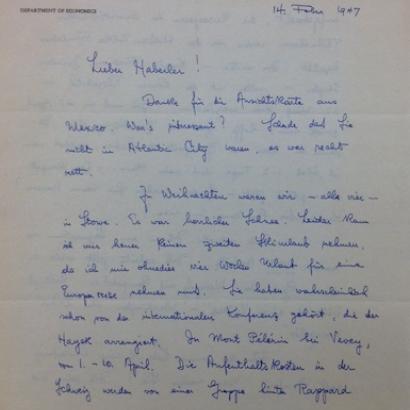 DEPARTMENT OF ECONOMICS
14. Febr. 1947
Lieber Haberler!
Danke für die Ansichtskarte aus
Mexico. War's interessant? Schade daß Sie
nicht in Atlantic City waren, es war recht
nett.
Zu Weihnachten waren wir – alle vier –
in Stowe. Es war herrlicher Schnee. Leider kann
ich mir heuer keinen zweiten Skiurlaub nehmen,
da ich mir ohnedies vier Wochen Urlaub für eine
Europareise nehmen muß. Sie haben wahrscheinlich
schon von der internationalen Konferenz gehört, die der
Hayek arrangiert. In Mont Pélérin bei Vevey,
vom 1. – 10. April. Die Aufenthaltskosten in der
Schweiz werden von einer Gruppe hinter Rappard